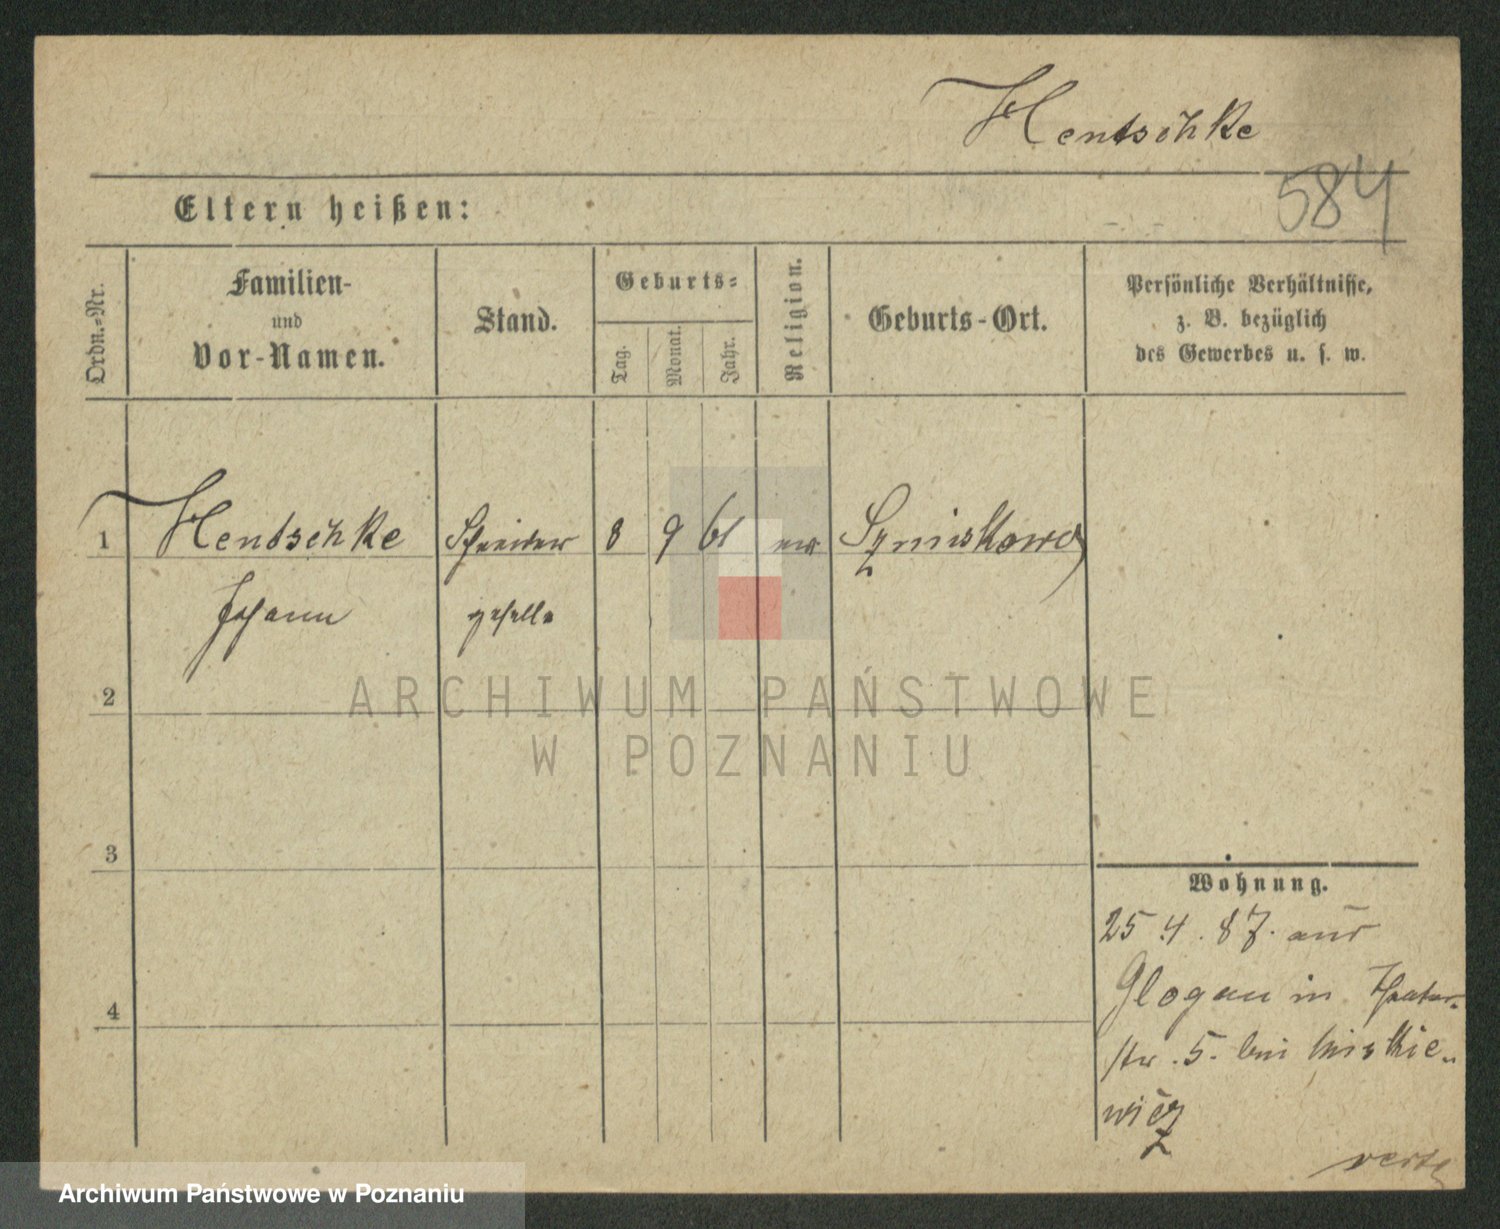 Hentschke
584
Eltern heißen:
Ordn.-Nr.
Familien-
und
Vor-Namen.
Stand.
Geburts-
Tag.
Monat.
Jahr.
Religion.
Geburts-Ort.
Persönliche Verhältnisse,
z. B. bezüglich
des Gewerbes u. s. w.
1 Hentschke Schneider 8 9 61 ev
Johann geselle
2
ARCHIWUM PAŃSTWOWE
W POZNANIU
3
4
Wohnung.
25.4.87. aus
Glogau in Theater-
str. 5. bei
wicz
verte
Archiwum Państwowe w Poznaniu